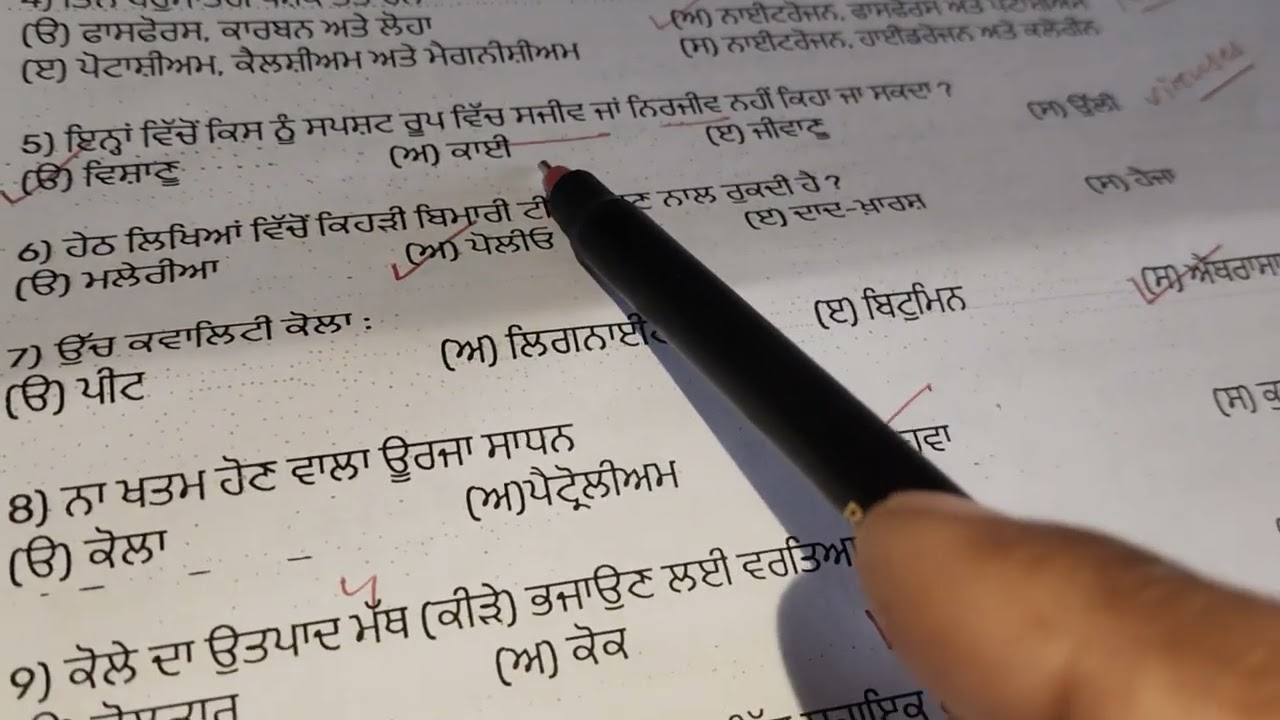 (ੳ) ਫਾਸਫੋਰਸ, ਕਾਰਬਨ ਅਤੇ ਲੋਹਾ (ਅ) ਨਾਈਟਰੋਜਨ, ਫਾਸਫੋਰਸ ਅਤੇ ਪੋਟਾਸ਼ੀਅਮ
(ੲ) ਪੋਟਾਸ਼ੀਅਮ, ਕੈਲਸ਼ੀਅਮ ਅਤੇ ਮੈਗਨੀਸ਼ੀਅਮ (ਸ) ਨਾਈਟਰੋਜਨ, ਹਾਈਡਰੋਜਨ ਅਤੇ ਕਲੋਰੀਨ
5) ਇਨ੍ਹਾਂ ਵਿੱਚੋਂ ਕਿਸ ਨੂੰ ਸਪਸ਼ਟ ਰੂਪ ਵਿੱਚ ਸਜੀਵ ਜਾਂ ਨਿਰਜੀਵ ਨਹੀਂ ਕਿਹਾ ਜਾ ਸਕਦਾ ?
(ੳ) ਵਿਸ਼ਾਣੂ (ਅ) ਕਾਈ (ੲ) ਜੀਵਾਣੂ (ਸ) ਉੱਲੀ viruses
6) ਹੇਠ ਲਿਖਿਆਂ ਵਿੱਚੋਂ ਕਿਹੜੀ ਬਿਮਾਰੀ ਨਾਲ ਰੁਕਦੀ ਹੈ ?
(ੳ) ਮਲੇਰੀਆ (ਅ) ਪੋਲੀਓ (ੲ) ਦਾਦ-ਖ਼ਾਰਸ਼ (ਸ) ਹੈਜਾ
7) ਉੱਚ ਕਵਾਲਿਟੀ ਕੋਲਾ :
(ੳ) ਪੀਟ (ਅ) ਲਿਗਨਾਈ (ੲ) ਬਿਟੁਮਿਨ (ਸ) ਐਂਥਰਾਸਾ
8) ਨਾ ਖਤਮ ਹੋਣ ਵਾਲਾ ਊਰਜਾ ਸਾਧਨ
(ੳ) ਕੋਲਾ (ਅ)ਪੈਟ੍ਰੋਲੀਅਮ (ਸ)
9) ਕੋਲੇ ਦਾ ਉਤਪਾਦ ਮੱਥ (ਕੀੜੇ) ਭਜਾਉਣ ਲਈ ਵਰਤਿਆ
(ਅ) ਕੋਕ